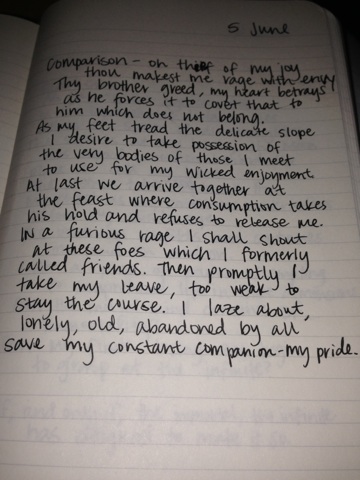 5 June
Comparison - oh thief of my joy
thou makest me rage with envy
Thy brother greed, my heart betrays
as he forces it to covet that to
him which does not belong.
As my feet tread the delicate slope
I desire to take possession of
the very bodies of those I meet
to use for my wicked enjoyment.
At last we arrive together at
the feast where consumption takes
his hold and refuses to release me.
In a furious rage I shall shout
at these foes which I formerly
called friends. Then promptly I
take my leave, too weak to
stay the course. I laze about,
lonely, old, abandoned by all,
save my constant companion-my pride.